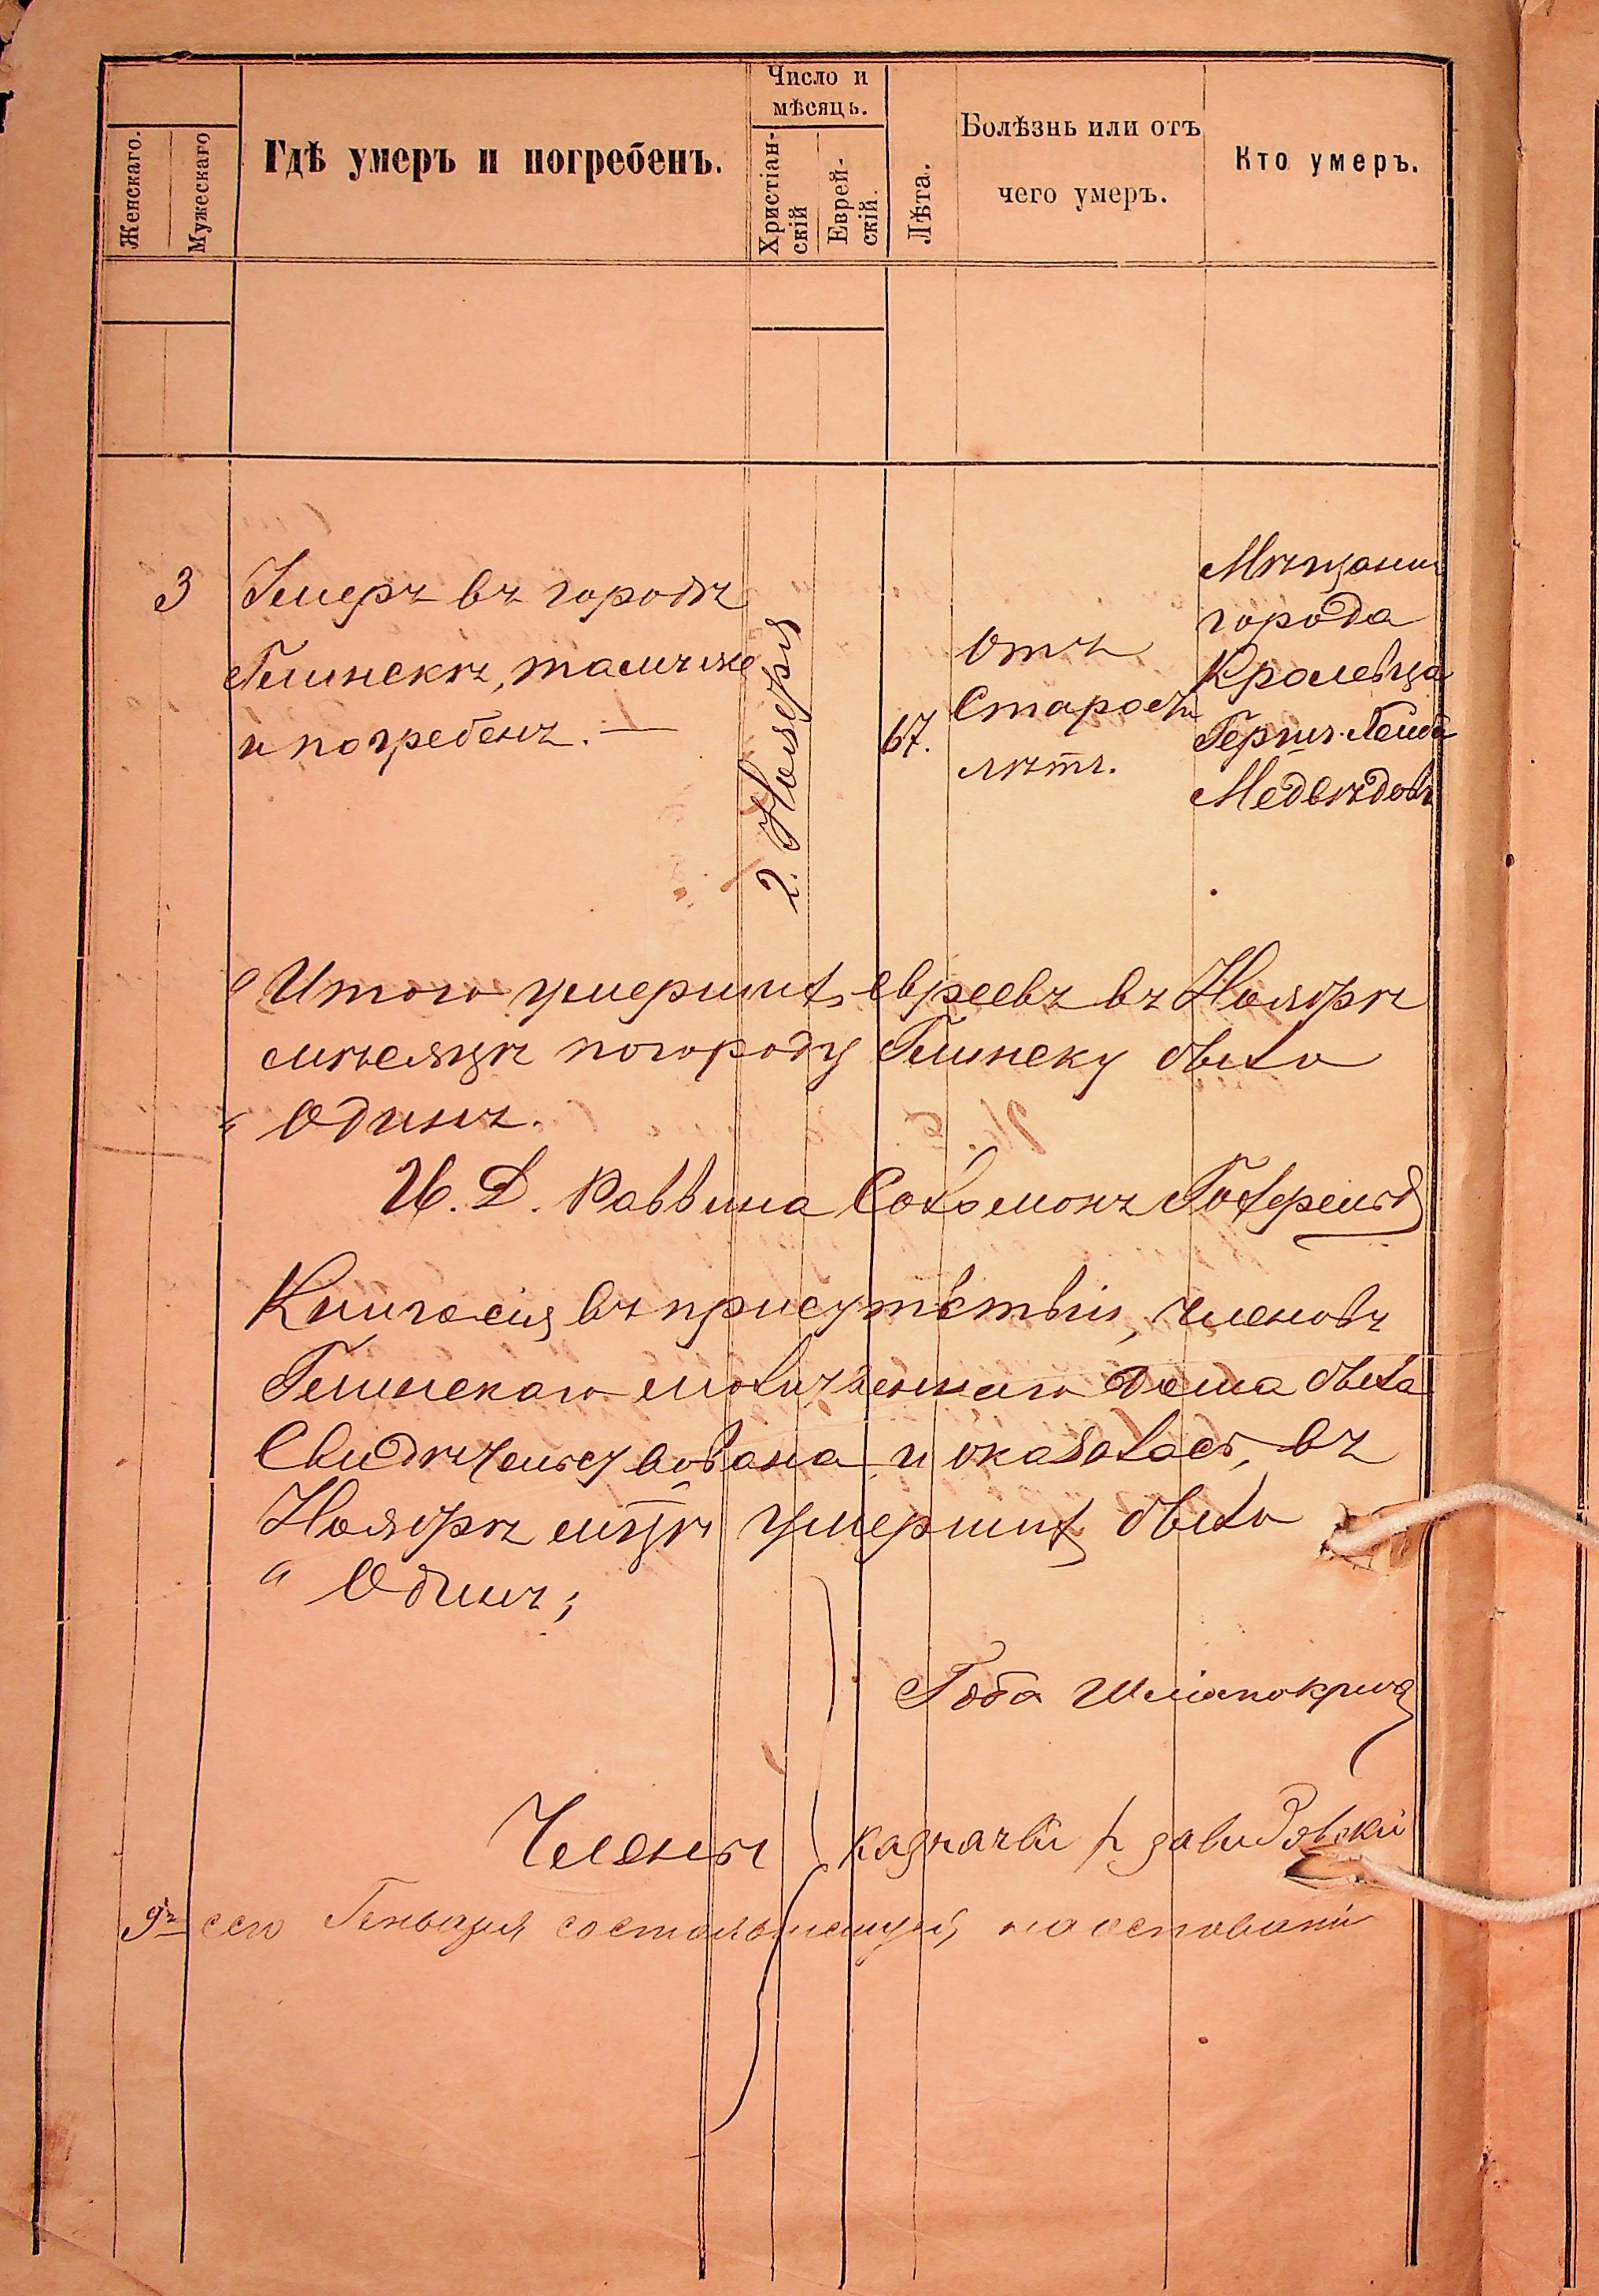 Женскаго.
Мужескаго
Гдѣ умеръ и погребенъ.
Число и
мѣсяцъ.
Христіан-
скій
Еврей-
скій.
Лѣта.
Болѣзнь или отъ
чего умеръ.
Кто умеръ.
3
Умеръ въ городѣ
Глинскѣ, тамъ же
и погребенъ. —
2. Ноября
67.
отъ
Старости
лѣтъ.
Мѣщанин
города
Кролевца
Гершъ
Медвѣдовъ
Итого умершихъ евреевъ въ Ноябрѣ
мѣсяцѣ по городу Глинску было
Одинъ.
И. Д. Раввина Соломонъ
Книга сія въ присутствіи, членовъ
Глинскаго молитвеннаго дома была
Свидѣтельствована и оказалась, въ
Ноябрѣ мцѣ умершихъ было
" Одинъ;
Члены
Казначѣй
9го сего Генваря состоявшемуся, на основаніи